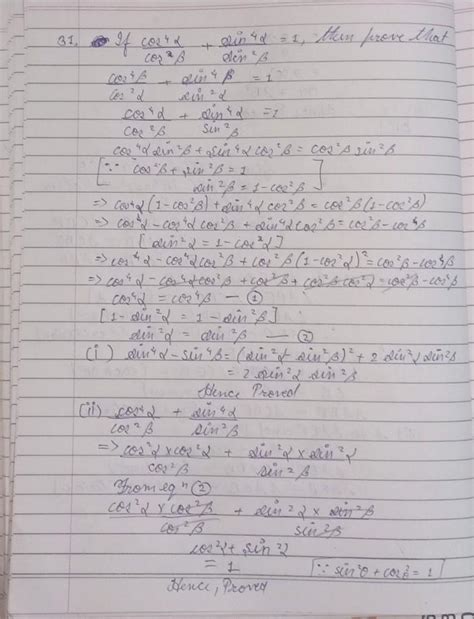 31. If cos⁴α/cos²β + sin⁴α/sin²β = 1, then prove that
cos⁴β/cos²α + sin⁴β/sin²α = 1
cos⁴α/cos²β + sin⁴α/sin²β = 1
cos⁴α sin²β + sin⁴α cos²β = cos²β sin²β
[∵ cos²β + sin²β = 1
sin²β = 1 - cos²β]
⇒ cos⁴α (1 - cos²β) + sin⁴α cos²β = cos²β (1 - cos²β)
⇒ cos⁴α - cos⁴α cos²β + sin⁴α cos²β = cos²β - cos⁴β
[sin²α = 1 - cos²α]
⇒ cos⁴α - cos⁴α cos²β + cos²β (1 - cos²α)² = cos²β - cos⁴β
⇒ cos⁴α - cos⁴α cos²β + cos²β + cos²β cos²α = cos²β - cos⁴β
cos⁴α = cos⁴β — ①
[1 - sin²α = 1 - sin²β]
sin²α = sin²β — ②
(i) sin⁴α - sin⁴β = (sin²α - sin²β)² + 2 sin²α sin²β
= 2 sin²α sin²β
Hence Proved
(ii) cos⁴α/cos²β + sin⁴α/sin²β
⇒ cos²α × cos²α/cos²β + sin²α × sin²α/sin²β
From eqⁿ ②
cos²α × cos²β/cos²β + sin²α × sin²β/sin²β
cos²α + sin²α
= 1 [∵ sin²θ + cos²θ = 1]
Hence, Proved